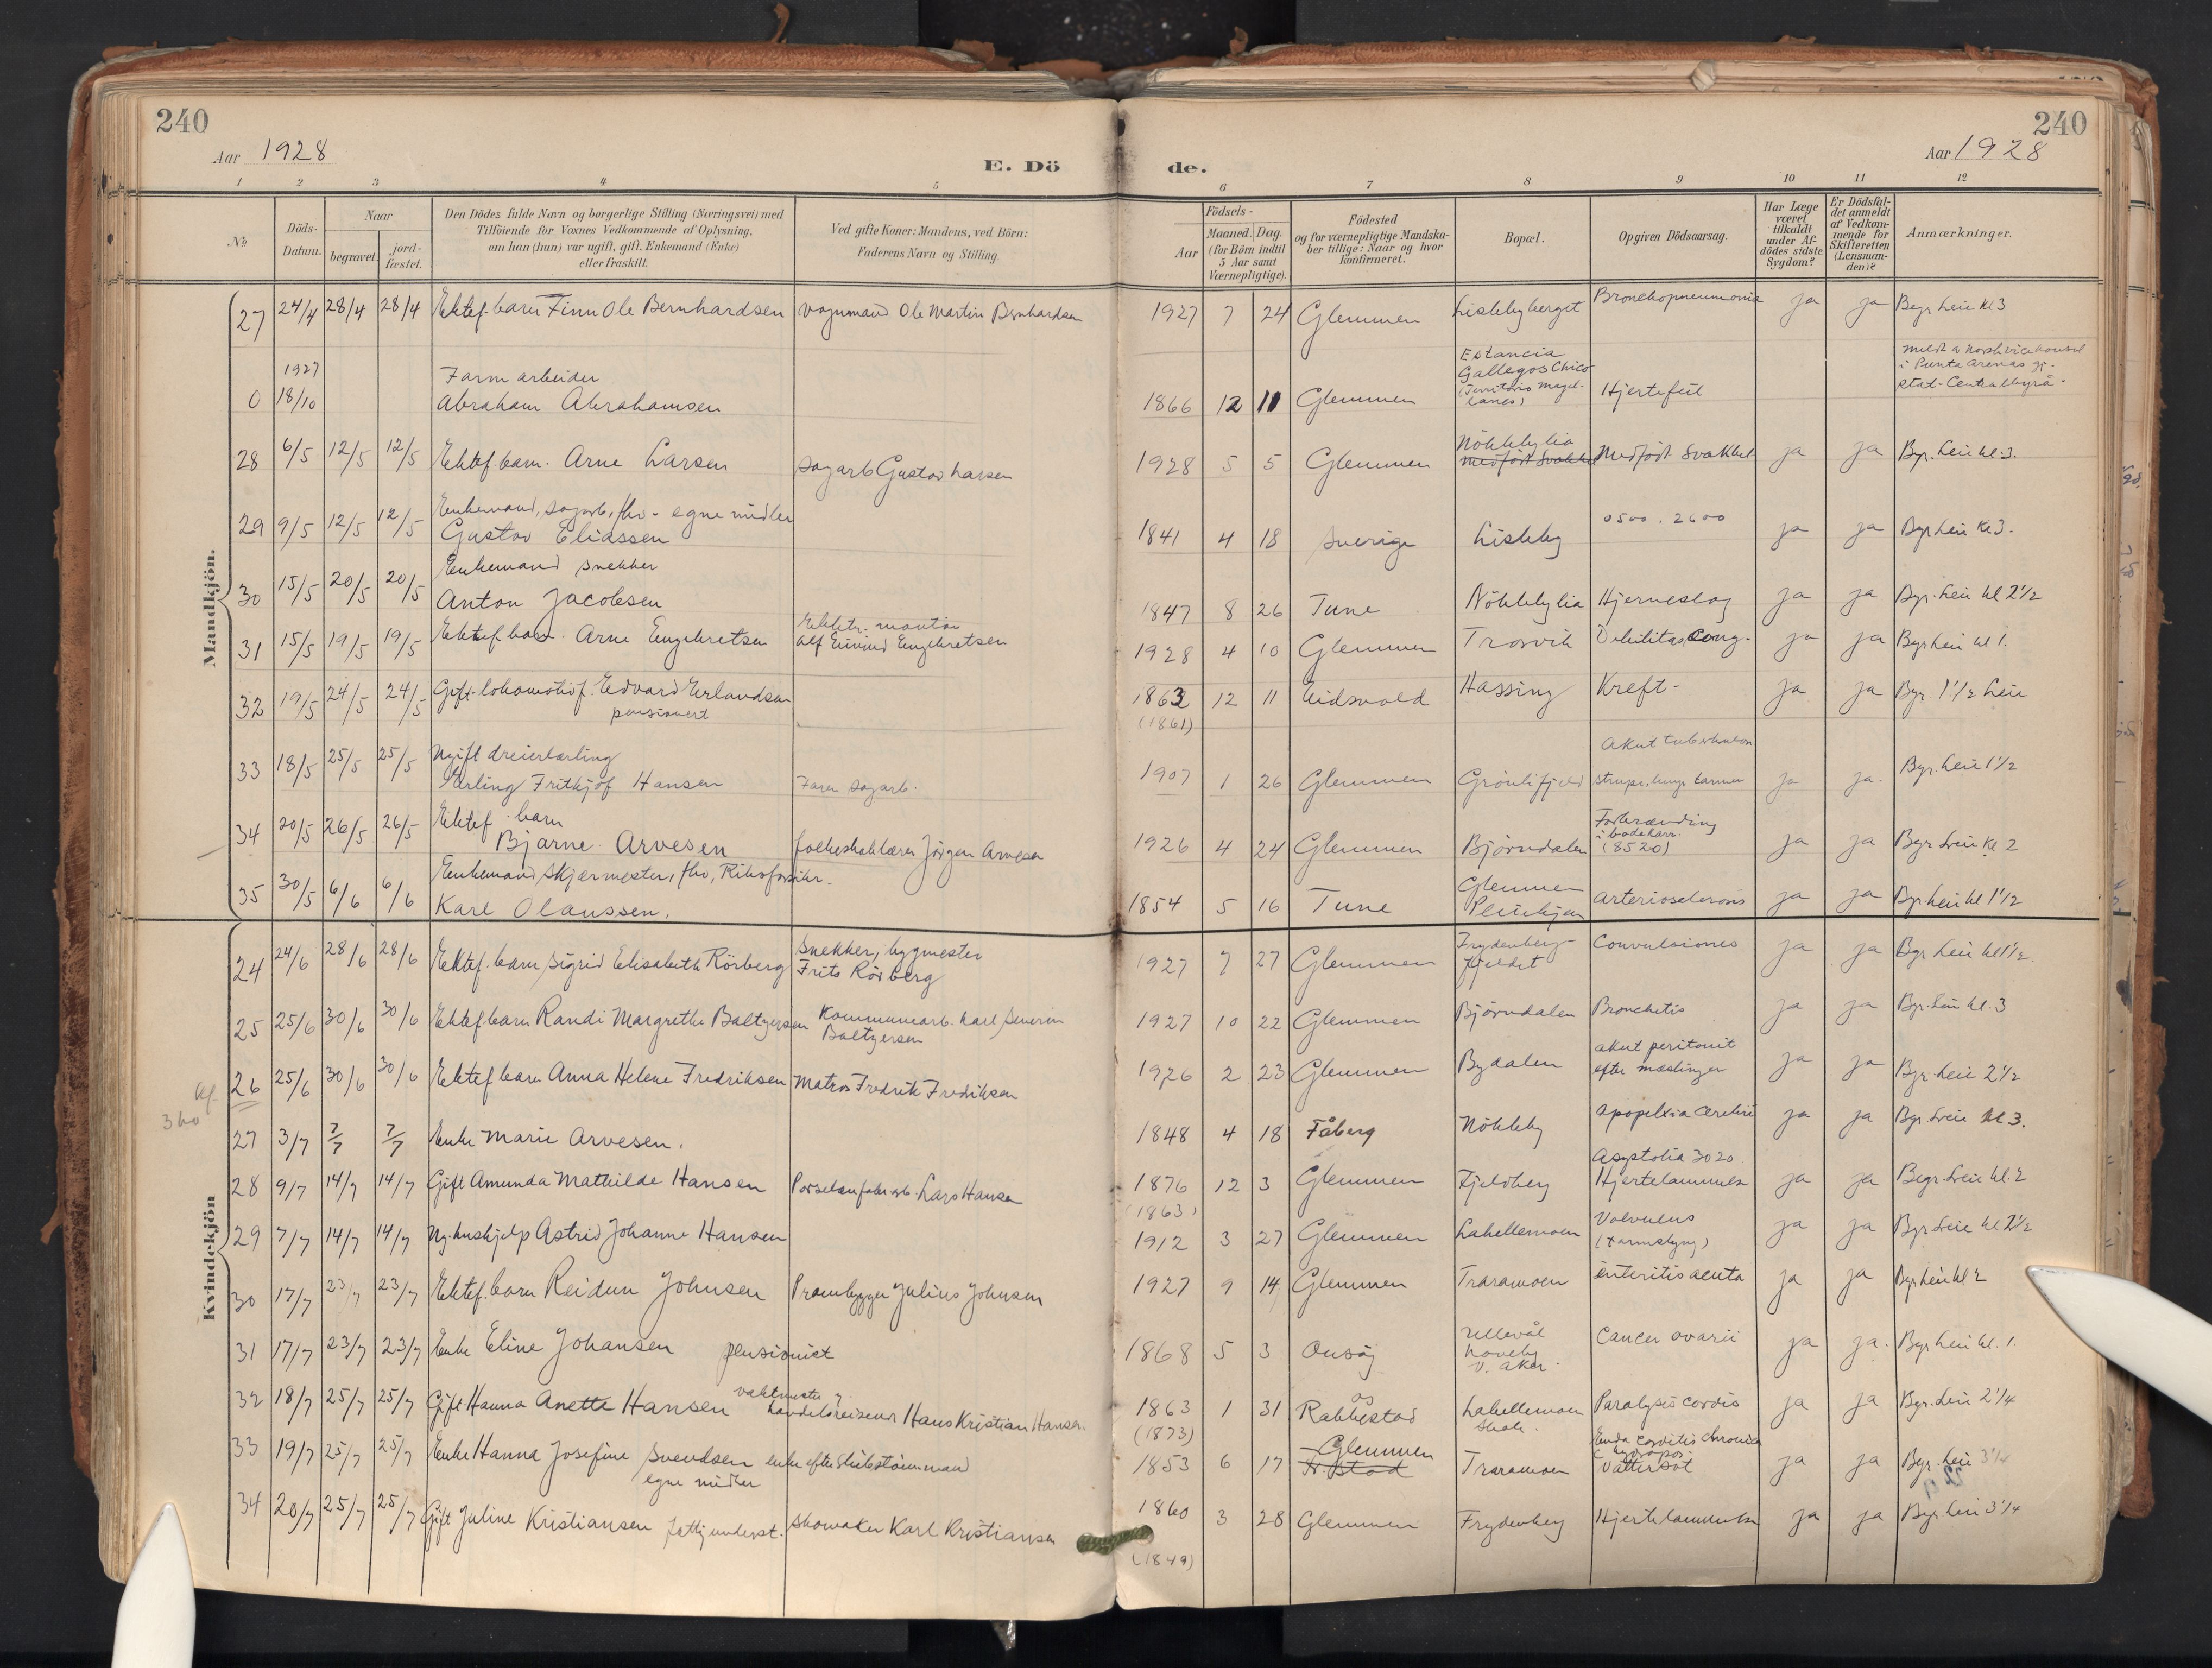 240
240
Aar 1928
Aar 1928
E. Dö de.
1 2 3 4 5 6 7 8 9 10 11 12
No
Döds-
Datum.
Naar
begravet.
jord-
fæstet.
Den Dödes fulde Navn og borgerlige Stilling (Næringsvei) med
Tilföiende for Voxnes Vedkommende af Oplysning,
om han (hun) var ugift, gift, Enkemand (Enke)
eller fraskilt.
Ved gifte Koner: Mandens, ved Börn:
Faderens Navn og Stilling.
Födsels-
Aar
Maaned. Dag.
(for Börn indtil
5 Aar samt
Værnepligtige).
Födested
og for værnepligtige Mandska-
ber tillige: Naar og hvor
konfirmeret.
Bopæl.
Opgiven Dödsaarsag.
Har Læge
været
tilkaldt
under Af-
dödes sidste
Sygdom?
Er Dödsfal-
det anmeldt
af Vedkom-
mende for
Skifteretten
(Lensman-
den)?
Anmærkninger.
Mandkjön.
27 24/4 28/4 28/4 Ektef. barn Finn Ole Bernhardsen vognmand Ole Martin Bernhardsen 1927 7 24 Glemmen Lislebyberget Bronchopneumonia ja ja Bgr. Leie kl 3
1927
Farmarbeider
0 18/10 Abraham Abrahamsen 1866 12 11 Glemmen
Estancia
Gallegos Chico
(Territorio Magel-
lanes)
Hjertefeil
meldt a norsk vicekonsul
i Punta Arenas gj.
stat. Centralbyrå.
28 6/5 12/5 12/5 Ektef. barn. Arne Larsen sagarb Gustav Larsen 1928 5 5 Glemmen
Nökkleby lia
medfödt Svakhet
Medfödt Svakhet ja ja Bgr. Leie kl. 3.
Enkemand, sagarb. fhv - egne midler
29 9/5 12/5 12/5 Gustav Eliassen 1841 4 18 Sverige Lisleby 0500. 2600 ja ja Bgr Leie Kl 3.
Enkemand snekker
30 15/5 20/5 20/5 Anton Jacobsen 1847 8 26 Tune Nökkleby lia Hjerneslag ja ja Bgr. Leie kl 2 1/2
31 15/5 19/5 19/5 Ektef. barn. Arne Engebretsen
Elektr. montör
Alf Eivind Engebretsen
1928 4 10 Glemmen Trosvik Debilitas cong. ja ja Bgr Leie kl 1.
32 19/5 24/5 24/5 Gift lokomotivf. Edvard Erlandsen
pensionert
1863 12 11 Eidsvold Hassing Kreft - ja ja Bgr. 1 1/2 Leie
(1861)
Ugift dreierlærling
33 18/5 25/5 25/5 Erling Frithjof Hansen Faren sagarb. 1907 1 26 Glemmen Grönlifjeld
Akut tuberkulose
strupe, lunge tarmer
ja ja. Bgr. Leie 1 1/2
Ektef. barn
34 20/5 26/5 26/5 Bjarne Arvesen folkeskolelærer Jörgen Arvesen 1926 4 24 Glemmen Björndalen
Forbrænding
i badekar.
(8520)
ja ja Bgr Leie kl 2
Enkemand, Skjærmester, fhv,
35 30/5 6/6 6/6 Karl Olaussen. 1854 5 16 Tune
Glemmen
Pleiehjem
Arteriosclerosis ja ja Bgr Leie kl 1 1/2
Kvindekjön
24 24/6 28/6 28/6 Ektef. barn Sigrid Elisabeth Rörberg
Snekker, bygmester
Frits Rörberg
1927 7 27 Glemmen
Frydenberg-
fjeldet
Convulsiones ja ja Bgr Leie kl 1 1/2.
25 25/6 30/6 30/6 Ektef barn Randi Margrethe Baltzersen
Kommunearb. Karl Severin
Baltzersen
1927 10 22 Glemmen Björndalen Bronchitis ja ja Bgr. Leie kl. 3
26 25/6 30/6 30/6 Ektef barn Anna Helene Fredriksen Matros Fredrik Fredriksen 1926 2 23 Glemmen Bydalen
akut peritonit
efter mæslinger
ja ja Bgr. Leie 2 1/2
360
27 3/7 7/7 7/7 Enke Marie Arvesen. 1848 4 18 Fåberg Nökkleby Apoplexia cerebri ja ja Bgr. Leie kl 3.
28 9/7 14/7 14/7 Gift Amunda Mathilde Hansen Porselensfabr arb Lars Hansen 1876 12 3 Glemmen Fjeldberg
Asystolia 3020.
Hjertelammelse
ja ja Begr. Leie kl. 2
(1863)
29 7/7 14/7 14/7 Ug. hushjelp Astrid Johanne Hansen 1912 3 27 Glemmen Lahellemoen
Volvulus
(tarmslyng)
ja ja Bgr Leie kl 2 1/2
30 17/7 23/7 23/7 Ektef. barn Reidun Johnsen Prambygger Julius Johnsen 1927 9 14 Glemmen Traramoen enteritis acuta ja ja Bgr Leie kl 2
31 17/7 23/7 23/7 Enke Eline Johansen pensionist 1868 5 3 Onsöy
Ullevål
Haveby
V. Aker.
Cancer ovarii ja ja. Bgr Leie kl. 1.
32 18/7 25/7 25/7 Gift Hanna Anette Hansen
vaktmester og
handelsreisende Hans Kristian Hansen.
1863 1 31 Rakkestad
Lahellemoen
Skole.
Paralysis cordis ja ja Bgr. Leie 2 1/4
(1873)
33 19/7 25/7 25/7 Enke Hanna Josefine Svendsen enke efter skibstömmermand
egne midler
1853 6 17
Glemmen
Fr. stad
Traramoen
Endocarditis chronica
(hydrops)
Vattersot
ja ja Bgr. Leie 3 1/4
34 20/7 25/7 25/7 Gift Juline Kristiansen fattigunderst. skomaker Karl Kristiansen 1860 3 28 Glemmen Frydenberg Hjertelammelse ja ja Bgr Leie 3 1/4
(1849)